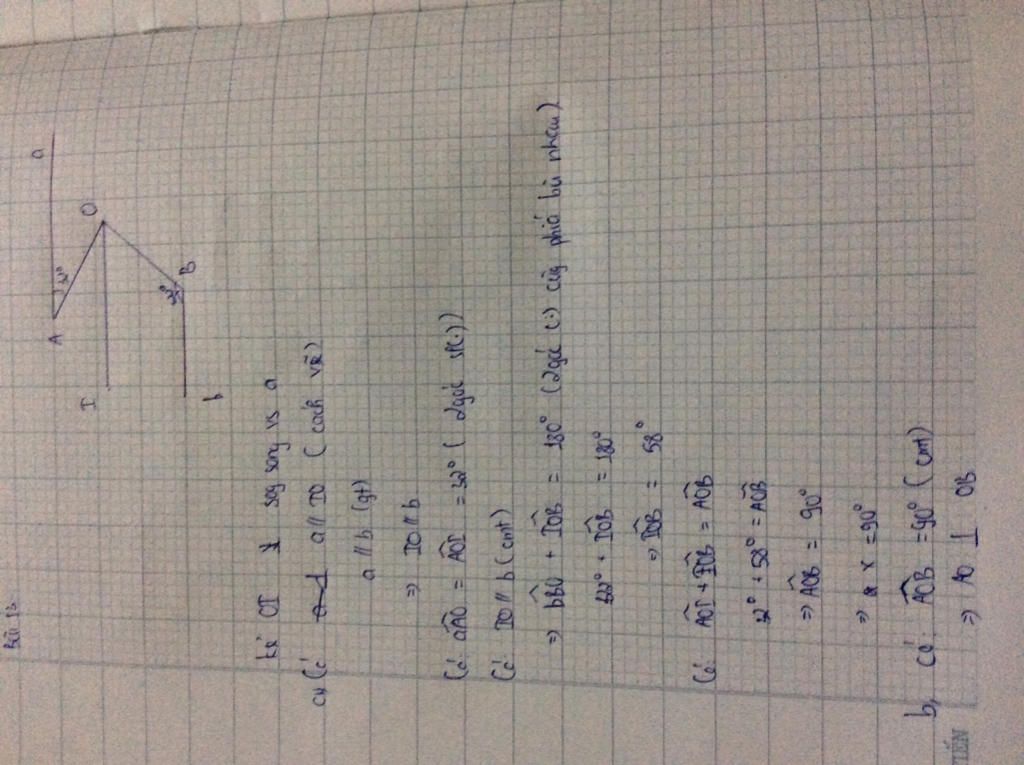 Bài 13
a
A
32°
O
I
B
b
kẻ OI sog song vs a
a, Có a // IO ( cách vẽ)
a // b (gt)
=> IO // b
Có: aAO = AOI = 32° ( 2 góc slt))
Có: IO // b (cmt)
=> bBO + IOB = 180° (2 góc (:) cùg phía bù nhau)
122° + IOB = 180°
=> IOB = 58°
Có: AOI + IOB = AOB
32° + 58° = AOB
=> AOB = 90°
=> x = 90°
b, Có: AOB = 90° (cmt)
=> AO ⊥ OB
TIẾN